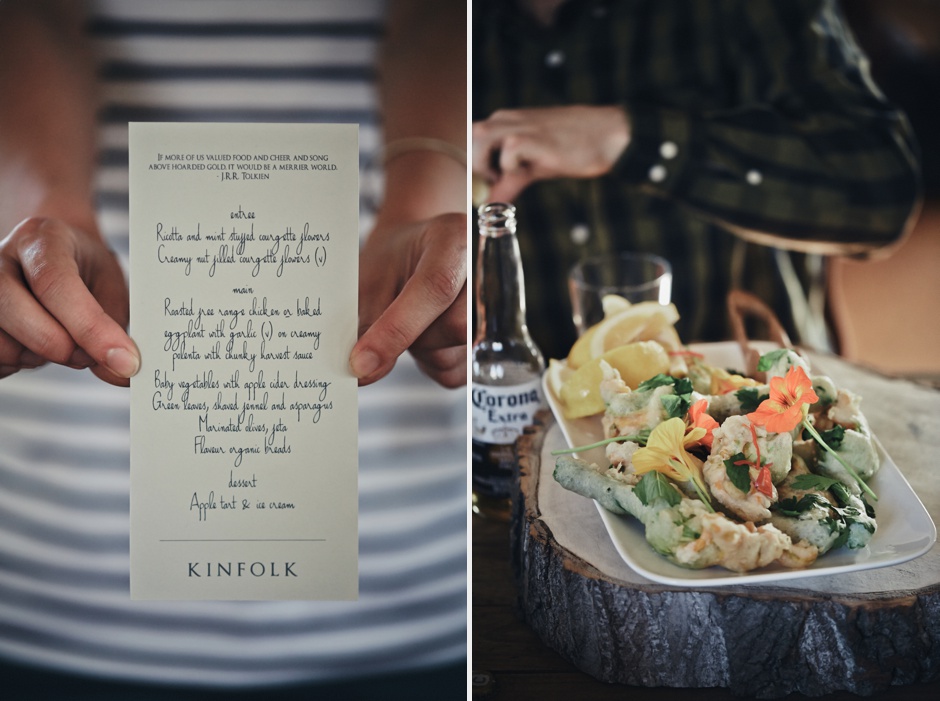 If more of us valued food and cheer and song
above hoarded gold, it would be a merrier world.
- J.R.R. Tolkien
entree
Ricotta and mint stuffed courgette flowers
Creamy nut filled courgette flowers (v)
main
Roasted free range chicken or baked
eggplant with garlic (v) on creamy
polenta with chunky harvest sauce
Baby vegetables with apple cider dressing
Green leaves, shaved fennel and asparagus
Marinated olives, feta
Flaveur organic breads
dessert
Apple tart & ice cream
KINFOLK
Corona
Extra